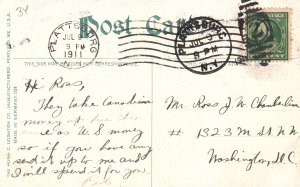 34
Post Card
PLATTSBURG
JUL 3
9 PM
1911
N.Y.
PLATTSBURG
JUL 3
9 PM
N.Y.
THIS SIDE
CORRESPONDENCE
THE HUGH C. LEIGHTON CO., MANUFACTURERS, PORTLAND, ME., U.S.A.
MADE IN GERMANY
Hi Ross,
They take Canadian
money
as U S money
so if you have any
send it up to me and
I will spend it for you.
Mr. Ross J. W. Chamberlin
# 1323 M St. N.W.
Washington, D.C.